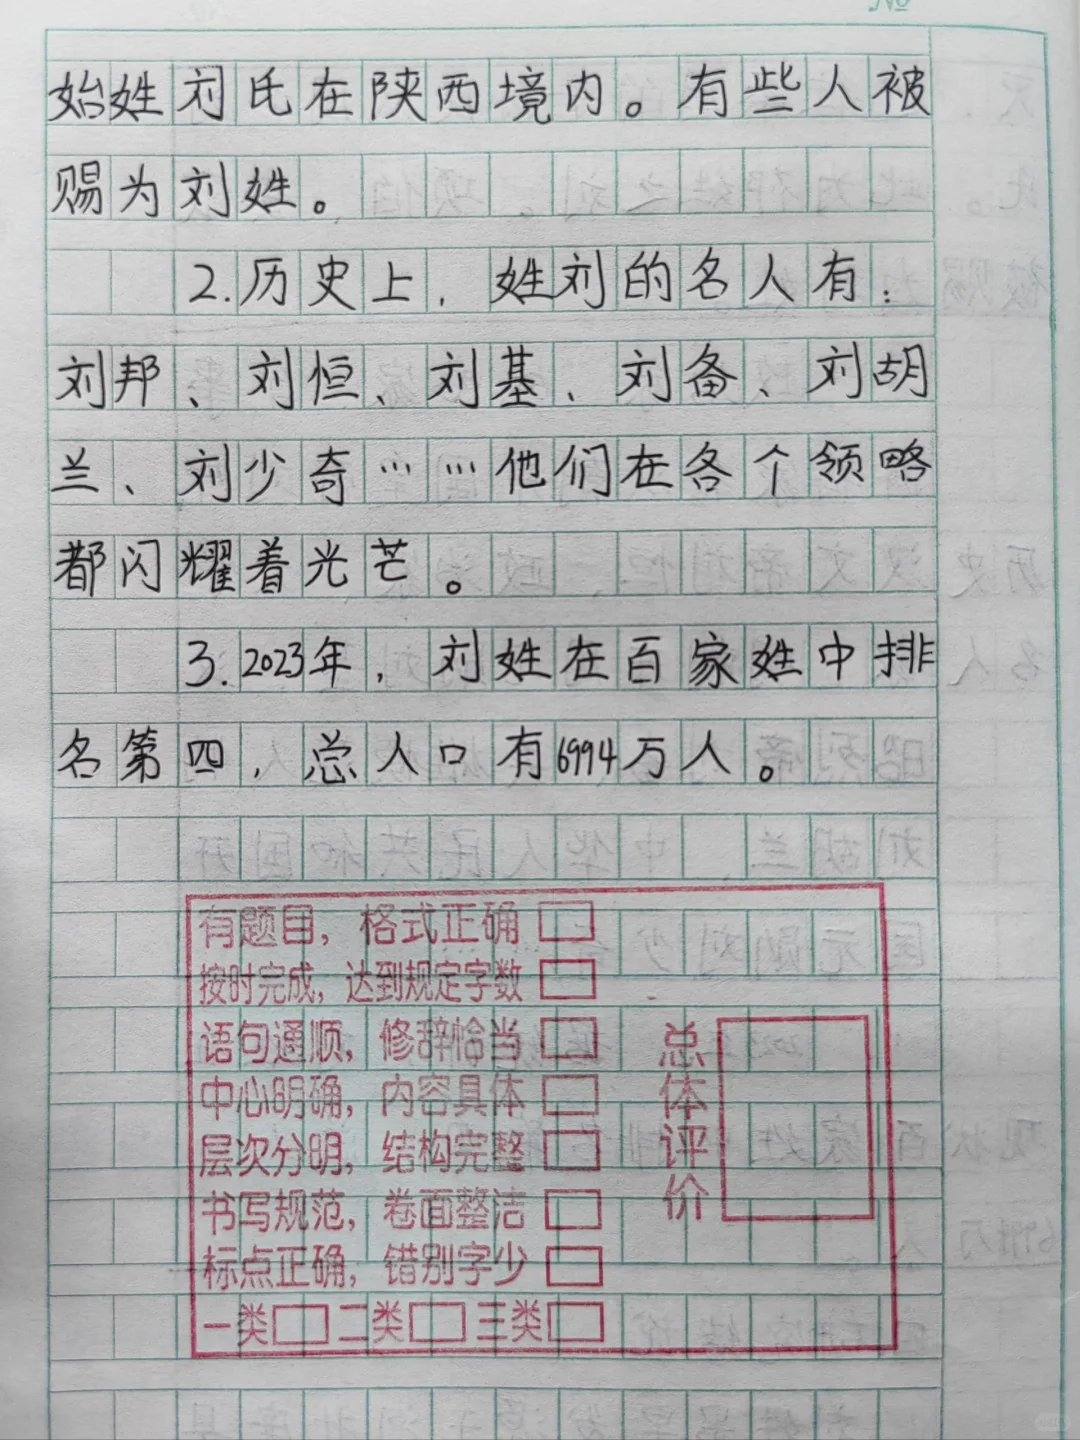 始姓刘氏在陕西境内。有些人被
赐为刘姓。
2.历史上，姓刘的名人有：
刘邦、刘恒、刘基、刘备、刘胡
兰、刘少奇……他们在各个领略
都闪耀着光芒。
3.2023年，刘姓在百家姓中排
名第四，总人口有6994万人。
有题目，格式正确
按时完成，达到规定字数
语句通顺，修辞恰当
中心明确，内容具体
层次分明，结构完整
书写规范，卷面整洁
标点正确，错别字少
一类 二类 三类
总体评价